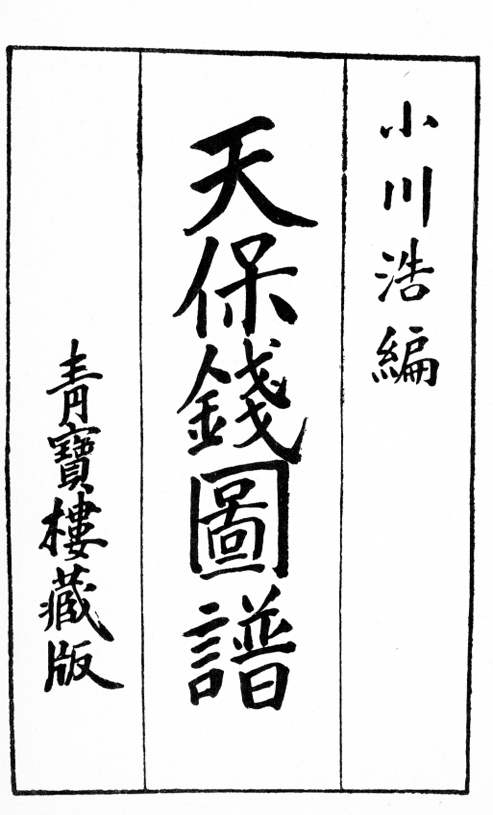 小川浩編
天保錢圖譜
青寶樓藏版